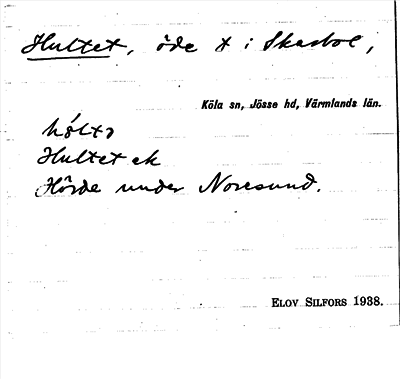 Hultet, öde t i Skarbol,
Köla sn, Jösse hd, Värmlands län.
hóltə
Hultet ek
Hörde under Noresund.
ELOV SILFORS 1938.